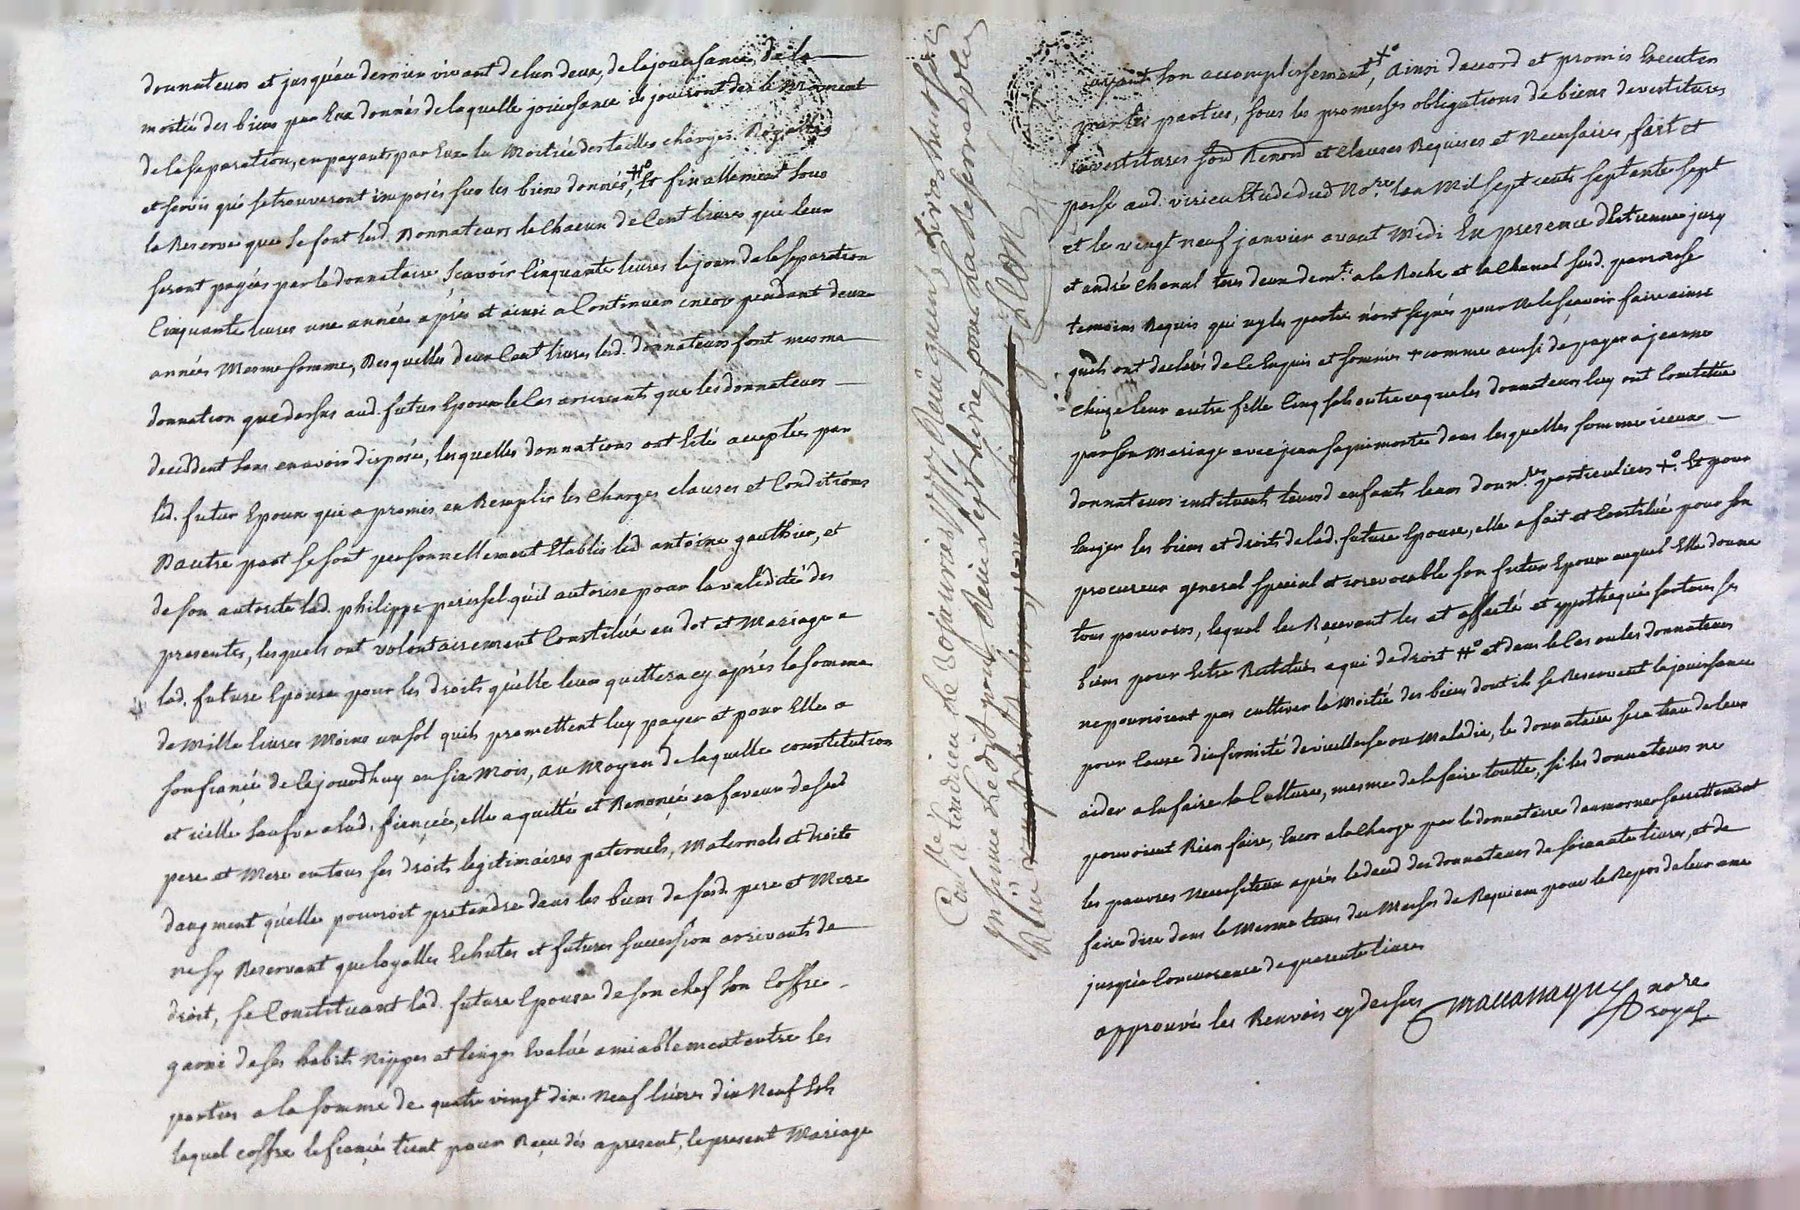 donnateurs et jusqu'au dernier vivant de lun deux, de la jouissance, de la
moitié des biens par Eux donnés de laquelle jouissance ils jouiront dez le moment
de la separation, en payants par Eux la Moitiée des tailles charges Royalles
et servis qui se trouveront imposés sur les biens donnés, #° Et finallement sous
la Reserve que se font lesd. Donnateurs de Chacun de Cent livres qui leur
seront payées par le donnataire, sçavoir Cinquante livres le jour de la separation
Cinquante livres une année après et ainsi a Continuer encor pendant deux
années Mesme somme, Desquelles deux Cent livres lesd. donnateurs font mesme
donnation que dessus aud. futur Epoux le Cas arrivants que les donnateurs
decedent sans en avoir disposés, lesquelles donnations ont Eté acceptées par
led. futur Epoux qui a promis en Remplir les Charges clauses et Conditions
Dautre part se sont personnellement Etablis led. antoine gauthier, et
de son autorité lad. philippe perissel qu'il autorise pour la validité des
presentes, lesquels ont volontairement Constitué en dot et Mariage a
lad. future Epouse pour les droits qu'elle leur quittera cy après la somme
de Mille livres Moins un sol quils promettent luy payer et pour Elle a
son fiancé de Cejourdhuy en six Mois, au Moyen de laquelle constitution
et icelle sauve a lad. fiancée, elle a quitté et Renoncé en faveur de sesd
pere et Mere en tous ses droits legitimaires paternels, Maternels et droits
daugment qu'elle pouvoit pretendre dans les biens de sesd. pere et Mere
ne sy Reservant que loyalles Echutes et futures succession arrivants de
droit, se Constituant lad. future Epouse de son chef son Coffre
garni de ses habits Nippes et linges Evalué amiablement entre les
parties a la somme de quatre vingt dix Neuf livres dix Neuf sols
lequel coffre le fiancé tient pour Reçu dès apresent, le present Mariage
Conlle
a tendrieu le
insinué ledit jour
ayant son accomplissement, +° Ainsi daccord et promis Executer
par les parties, sous les promesses obligations de biens devestitures
investitures foud Renond et Clauses Requises et Necessaires, fait et
passé aud. virieu Etude dud Nore. lan Mil sept cents septante sept
et le vingt neuf janvier avant Midi En presence dEtienne jury
et andré Chanal tous deux demt. a la Roche et la Chanal susd. paroisse
temoins Requis qui ny les parties n'ont signés pour Ne le sçavoir faire ainsi
quils ont declarés de Ce Enquis et sommés + comme aussi de payer a jeanne
Chize leur autre fille Cinq sols outre ce que les donnateurs luy ont Constitué
par son Mariage avec jean seguimorte dans lesquelles sommes iceux
donnateurs instituent leursd enfants leurs donnres particuliers +° Et pour
Exiger les biens et droits de lad. future Epouse, elle a fait et Constitué pour son
procureur general special et irrevocable son futur Epoux auquel Elle donne
tous pouvoirs, lequel les Recevant les at affecté et ypothequé sur tous ses
biens pour Estre Restitués a qui de droit #° et dans le Cas ou les donnateurs
ne pourroient pas cultiver la Moitié des biens dont ils se Reservent la jouissance
pour Cause dinfirmité de vieillesse ou Maladie, le donnataire sera tenu de leur
aider a en faire la Culture, mesme de la faire toutte, si les donnateurs ne
pouvoient Rien faire, Encor a la Charge par le donnataire daumosner secrettement
les pauvres Necessiteux après le deced des donnateurs de soixante livres, et de
faire dire dans le Mesme tems des Messes de Requiem pour le Repos de leur ame
jusqu'a Concurrance de quarente livres
approuvé les Renvois cy dessus
nore
royal